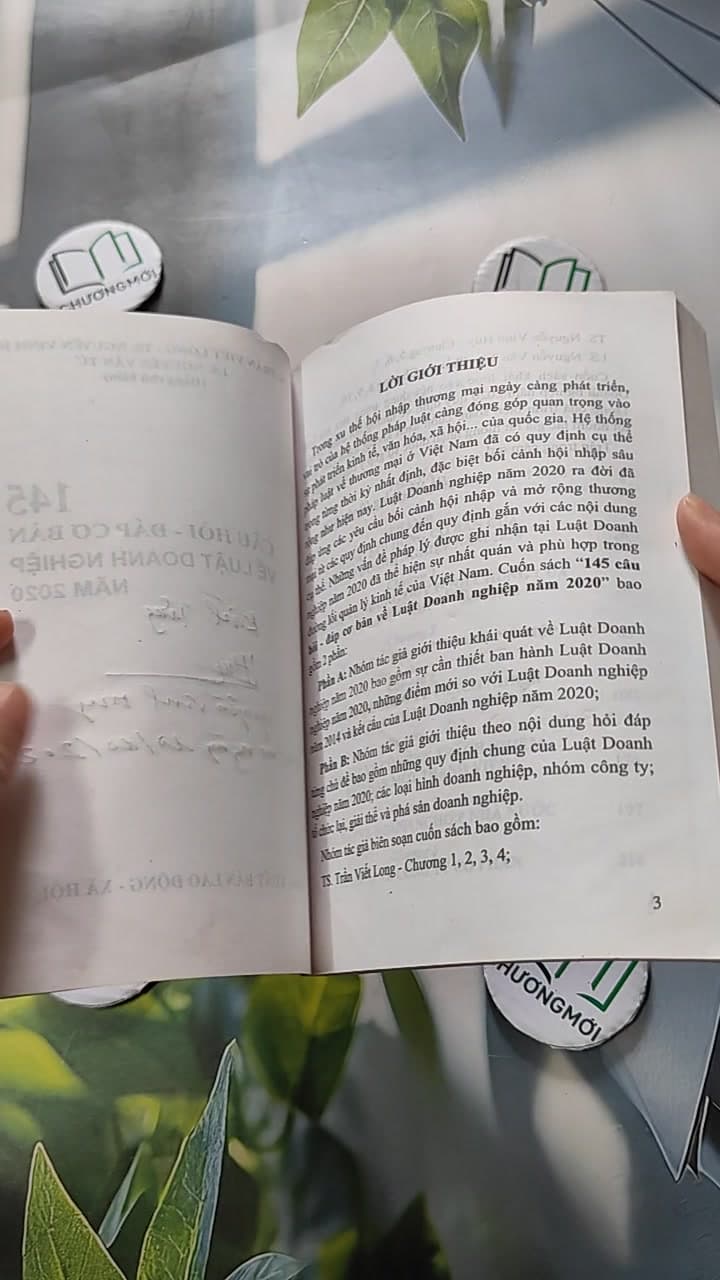 CHƯƠNGMỚI
LỜI GIỚI THIỆU
Trong xu thế hội nhập thương mại ngày càng phát triển,
trò của hệ thống pháp luật càng đóng góp quan trọng vào
sự phát triển kinh tế, văn hóa, xã hội... của quốc gia. Hệ thống
pháp luật về thương mại ở Việt Nam đã có quy định cụ thể
trong từng thời kỳ nhất định, đặc biệt bối cảnh hội nhập sâu
rộng như hiện nay. Luật Doanh nghiệp năm 2020 ra đời đã
đáp ứng các yêu cầu bối cảnh hội nhập và mở rộng thương
mại từ các quy định chung đến quy định gắn với các nội dung
cụ thể. Những vấn đề pháp lý được ghi nhận tại Luật Doanh
nghiệp năm 2020 đã thể hiện sự nhất quán và phù hợp trong
đường lối quản lý kinh tế của Việt Nam. Cuốn sách “145 câu
hỏi - đáp cơ bản về Luật Doanh nghiệp năm 2020” bao
gồm 2 phần:
Phần A: Nhóm tác giả giới thiệu khái quát về Luật Doanh
nghiệp năm 2020 bao gồm sự cần thiết ban hành Luật Doanh
nghiệp năm 2020, những điểm mới so với Luật Doanh nghiệp
năm 2014 và kết cấu của Luật Doanh nghiệp năm 2020;
Phần B: Nhóm tác giả giới thiệu theo nội dung hỏi đáp
từng chủ đề bao gồm những quy định chung của Luật Doanh
nghiệp năm 2020; các loại hình doanh nghiệp, nhóm công ty;
tổ chức lại, giải thể và phá sản doanh nghiệp.
Nhóm tác giả biên soạn cuốn sách bao gồm:
TS. Trần Viết Long - Chương 1, 2, 3, 4;
3
HƯƠNGMỚI